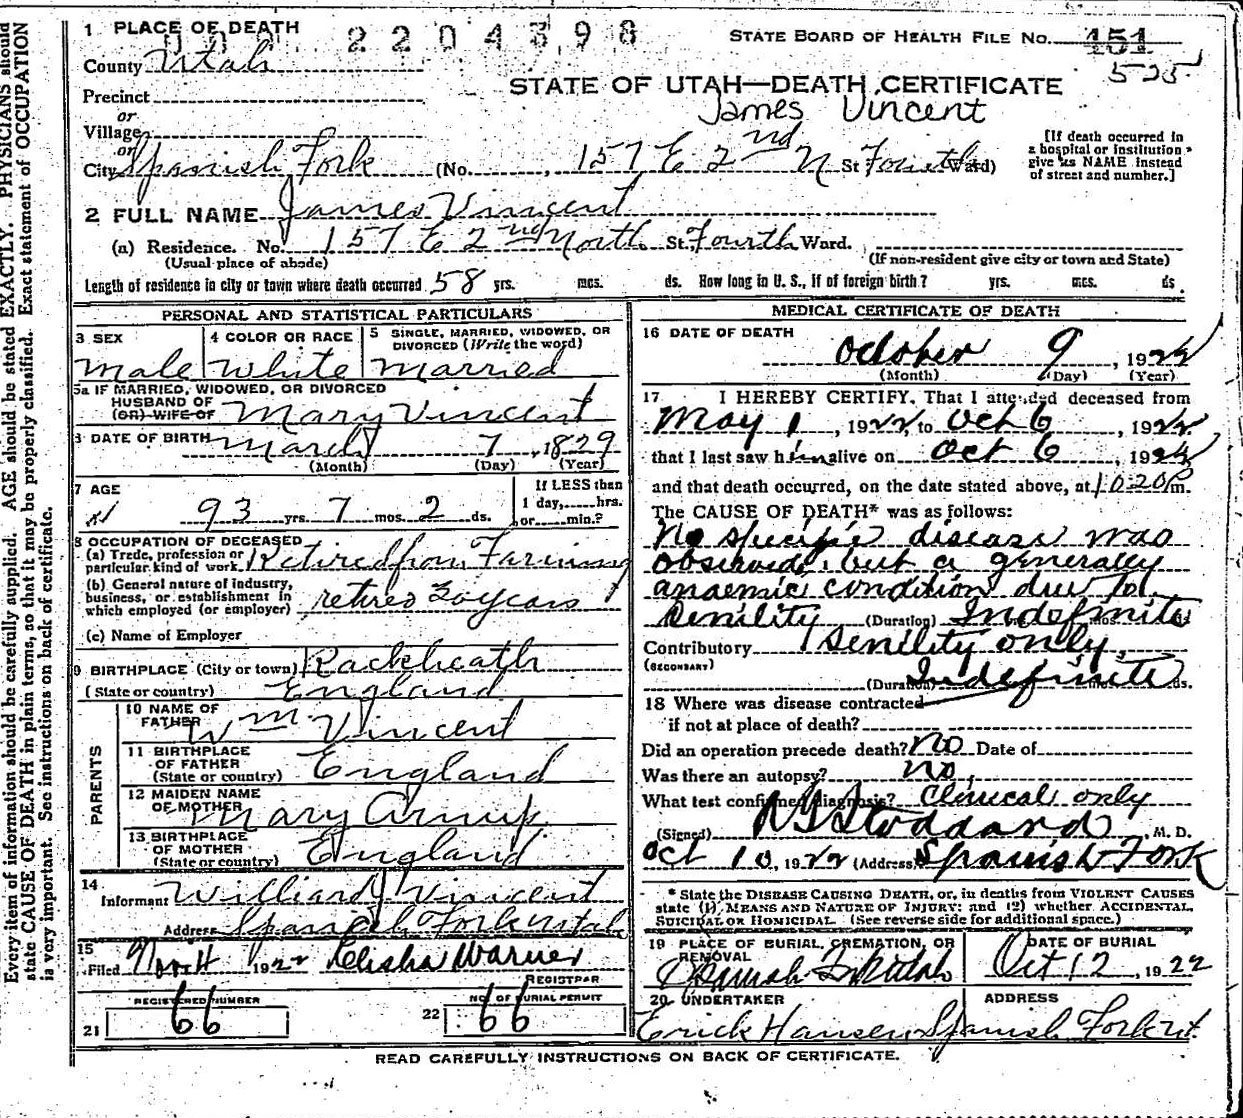 1 PLACE OF DEATH
2204398
STATE BOARD OF HEALTH FILE No. 151
525
County Utah
STATE OF UTAH—DEATH CERTIFICATE
Precinct
James Vincent
or
Village
or
City Spanish Fork (No. 157 E 2nd N St Fourth Ward)
[If death occurred in
a hospital or institution
give its NAME instead
of street and number.]
2 FULL NAME James Vincent
(a) Residence. No. 157 E 2nd North St. Fourth Ward.
(Usual place of abode) (If non-resident give city or town and State)
Length of residence in city or town where death occurred 58 yrs. mos. ds. How long in U. S., if of foreign birth? yrs. mos. ds.
PERSONAL AND STATISTICAL PARTICULARS
3 SEX
Male
4 COLOR OR RACE
White
5 SINGLE, MARRIED, WIDOWED, OR
DIVORCED (Write the word)
Married
5a IF MARRIED, WIDOWED, OR DIVORCED
HUSBAND OF
(OR) WIFE OF Mary Vincent
DATE OF BIRTH March 7, 1829
(Month) (Day) (Year)
7 AGE
93 yrs. 7 mos. 2 ds.
If LESS than
1 day, hrs.
or min.?
8 OCCUPATION OF DECEASED
(a) Trade, profession or
particular kind of work Retired from Farming
(b) General nature of industry,
business, or establishment in
which employed (or employer) retired 30 years
(c) Name of Employer
9 BIRTHPLACE (City or town) Rackheath
(State or country) England
PARENTS
10 NAME OF
FATHER Wm Vincent
11 BIRTHPLACE
OF FATHER
(State or country) England
12 MAIDEN NAME
OF MOTHER Mary Arnup
13 BIRTHPLACE
OF MOTHER
(State or country) England
14
Informant Williard Vincent
Address Spanish Fork Utah
15
Filed Nov 4 1922 Elisha Warner
REGISTRAR
REGISTERED NUMBER
21 66
NO. OF BURIAL PERMIT
22 66
MEDICAL CERTIFICATE OF DEATH
16 DATE OF DEATH
October 9, 1922
(Month) (Day) (Year)
17 I HEREBY CERTIFY, That I attended deceased from
May 1, 1922, to Oct 6, 1922
that I last saw him alive on Oct 6, 1922
and that death occurred, on the date stated above, at 10:20 P m.
The CAUSE OF DEATH* was as follows:
No specific disease was
observed, but a generally
anaemic condition due to
Senility (Duration) Indefinite mos. ds
Contributory Senility only,
(SECONDARY)
(Duration) Indefinite mos. ds.
18 Where was disease contracted
if not at place of death?
Did an operation precede death? No Date of
Was there an autopsy? no,
What test confirmed diagnosis? Clinical only
(Signed) Stoddard, M. D.
Oct 10, 1922 (Address) Spanish Fork
* State the DISEASE CAUSING DEATH, or, in deaths from VIOLENT CAUSES
state (1) MEANS AND NATURE OF INJURY; and (2) whether ACCIDENTAL,
SUICIDAL OR HOMICIDAL. (See reverse side for additional space.)
19 PLACE OF BURIAL, CREMATION, OR
REMOVAL
Spanish Fk Utah
DATE OF BURIAL
Oct 12, 1922
20 UNDERTAKER
Erick Hansen
ADDRESS
Spanish Fork Ut.
READ CAREFULLY INSTRUCTIONS ON BACK OF CERTIFICATE.
Every item of information should be carefully supplied. AGE should be stated EXACTLY. PHYSICIANS should
state CAUSE OF DEATH in plain terms, so that it may be properly classified. Exact statement of OCCUPATION
is very important. See instructions on back of certificate.